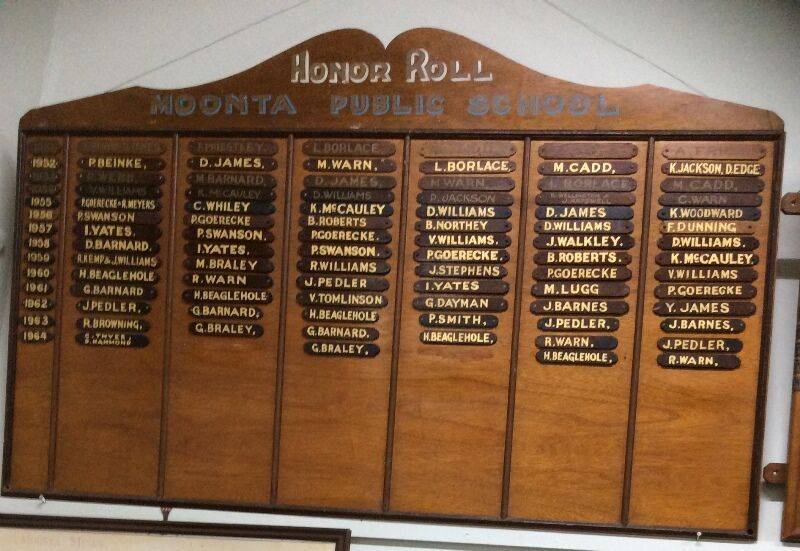 HONOR ROLL
MOONTA PUBLIC SCHOOL
F.PRIESTLEY. L.BORLACE
1952 P.BEINKE, D.JAMES, M.WARN, L.BORLACE, M.CADD, K.JACKSON, D.EDGE
M.BARNARD D.JAMES M.WARN L.BORLACE M.CADD
V.WILLIAMS K.McCAULEY D.WILLIAMS P.JACKSON C.WARN
1955 P.GOERECKE & R.MEYERS C.WHILEY K.McCAULEY D.WILLIAMS D.JAMES K.WOODWARD
1956 P.SWANSON P.GOERECKE B.ROBERTS B.NORTHEY D.WILLIAMS F.DUNNING
1957 I.YATES. P.SWANSON. P.GOERECKE. V.WILLIAMS. J.WALKLEY. D.WILLIAMS.
1958 D.BARNARD. I.YATES. P.SWANSON. P.GOERECKE B.ROBERTS. K.McCAULEY.
1959 R.KEMP & J.WILLIAMS M.BRALEY R.WILLIAMS J.STEPHENS P.GOERECKE V.WILLIAMS
1960 H.BEAGLEHOLE R.WARN J.PEDLER I.YATES M.LUGG P.GOERECKE
1961 G.BARNARD H.BEAGLEHOLE V.TOMLINSON G.DAYMAN J.BARNES Y.JAMES
1962 J.PEDLER, G.BARNARD, H.BEAGLEHOLE P.SMITH, J.PEDLER, J.BARNES,
1963 R.BROWNING, G.BRALEY, G.BARNARD, H.BEAGLEHOLE, R.WARN, J.PEDLER,
1964 G.BRALEY, H.BEAGLEHOLE, R.WARN,